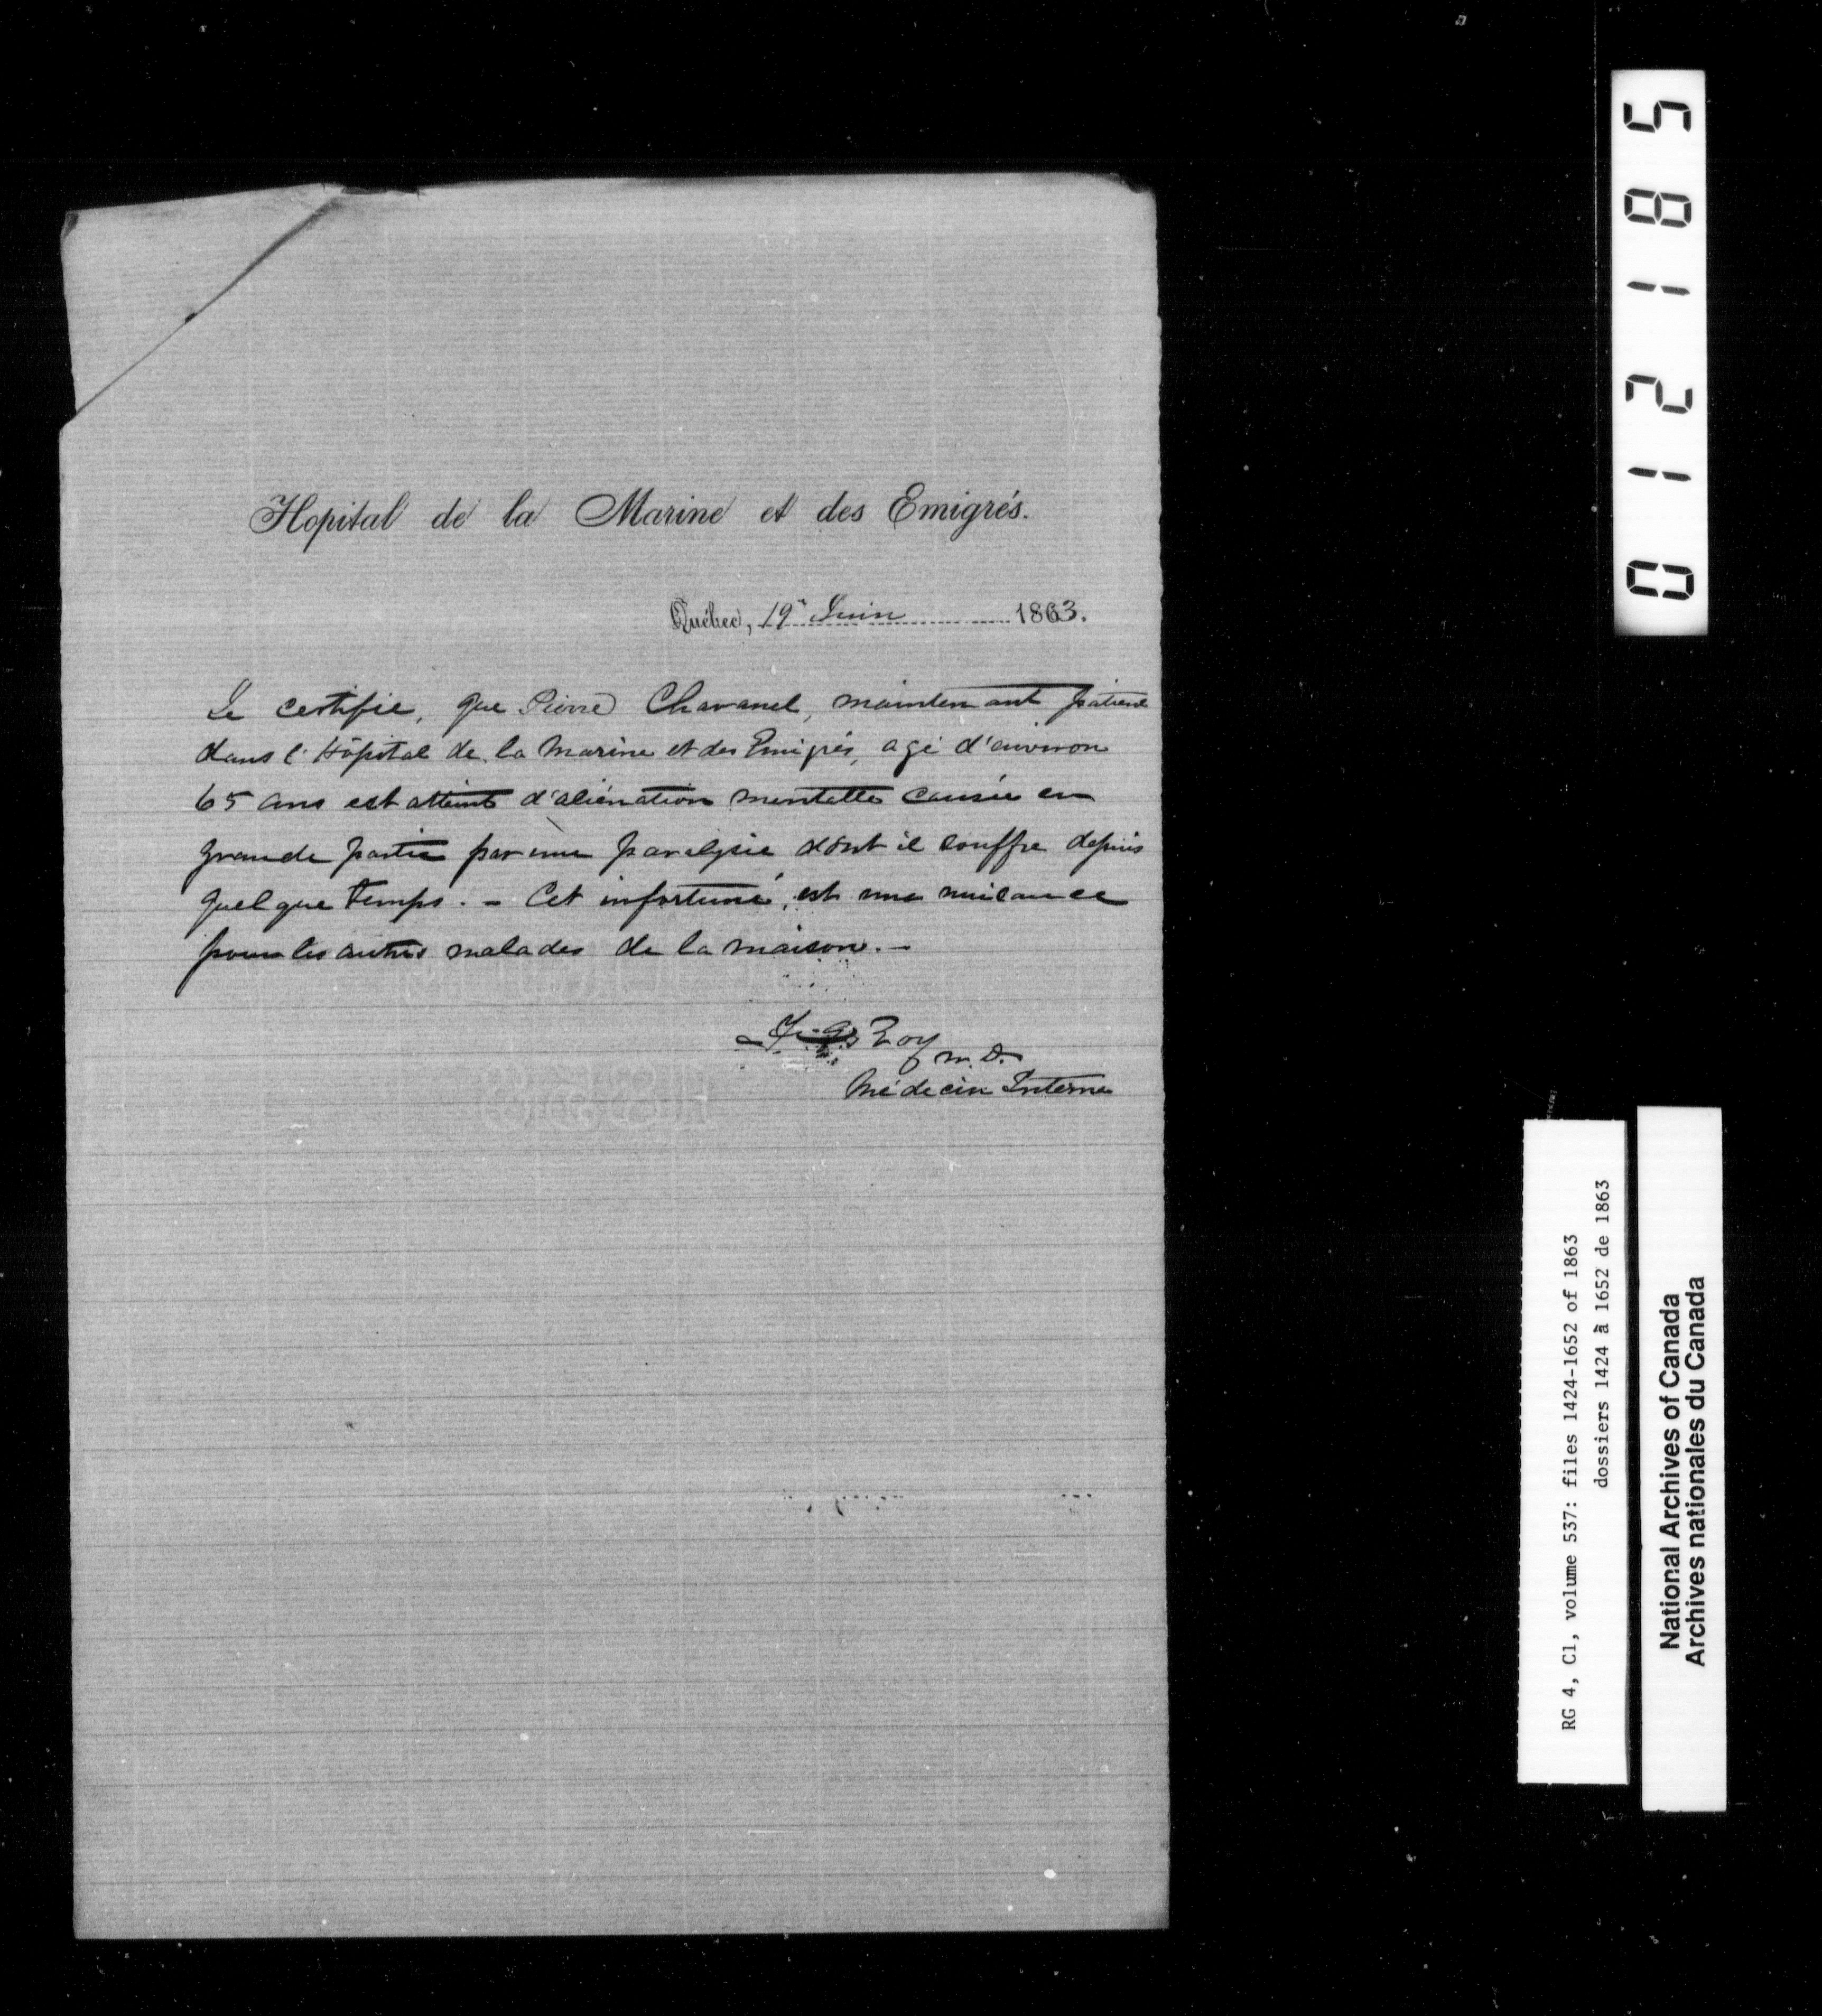 Hopital de la Marine et des Emigrés.
Québec, 19 Juin 1863.
Je certifie, que Pierre Chavanel, maintenant patient
dans l'Hôpital de la Marine et des Emigrés, agé d'environ
65 ans est atteint d'aliénation mentalle causée en
grande partie par une paralysie dont il souffre depuis
quelque temps. - Cet infortuné, est une nuisance
pour les autres malades de la maison. -
Roy M.D.
Médecin Interne
012185
RG 4, C1, volume 537: files 1424-1652 of 1863
dossiers 1424 à 1652 de 1863
National Archives of Canada
Archives nationales du Canada